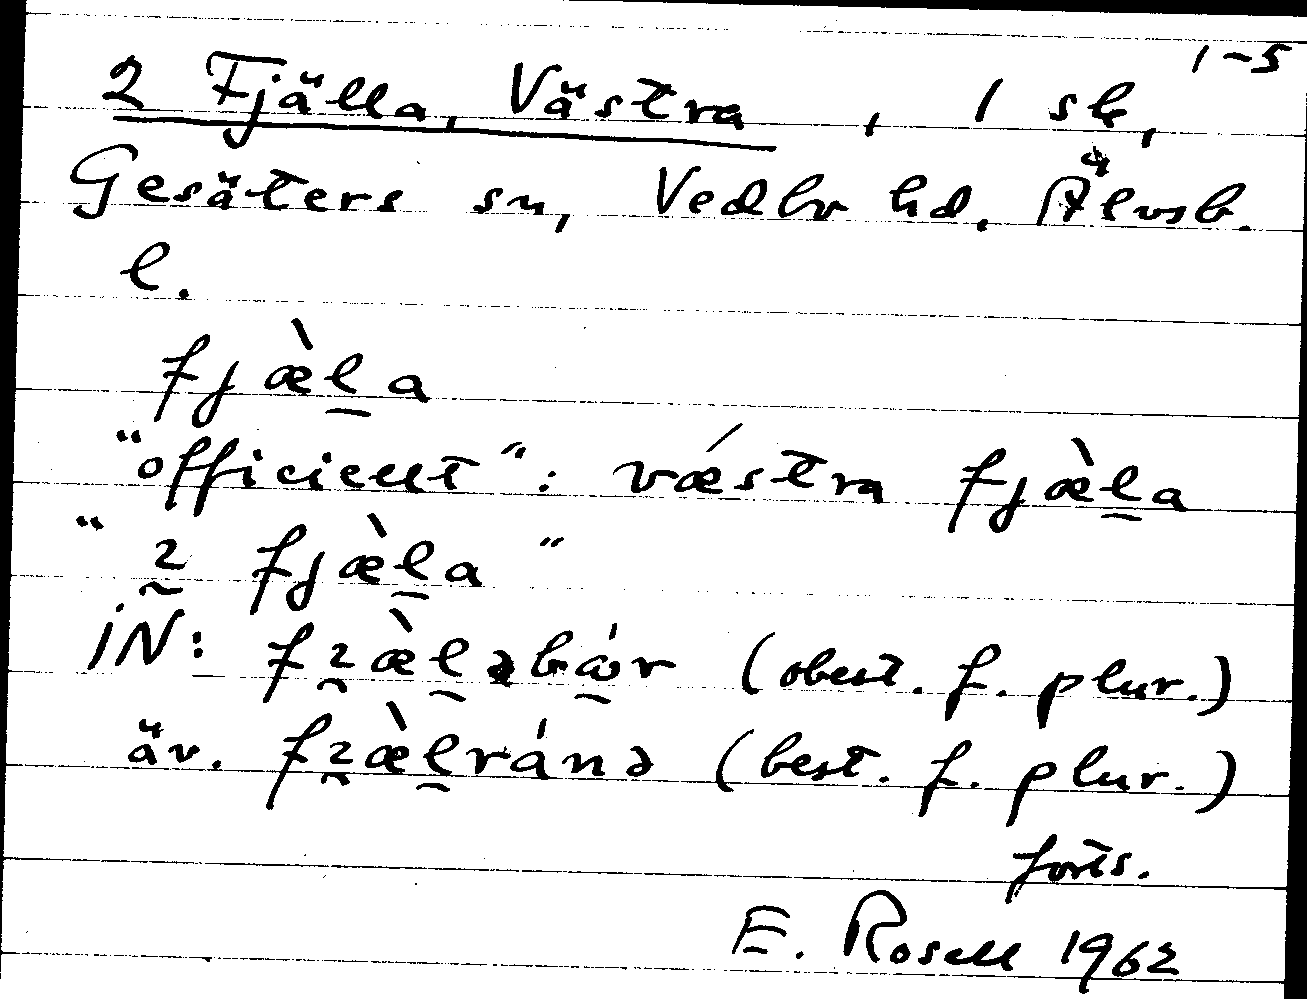 1-5
2 Fjälla, Västra, 1 sk,
Gesäters sn, Vedbo hd. Älvsb.
l.
fjæ̀l̰a
"officiellt": vǽstra fjæ̀l̰a
"2̰ fjæ̀l̰a"
iN: fʒæ̀l̰əbår (obest. f. plur.)
äv. fʒæ̀l̰ránə (best. f. plur.)
forts.
E. Rosell 1962